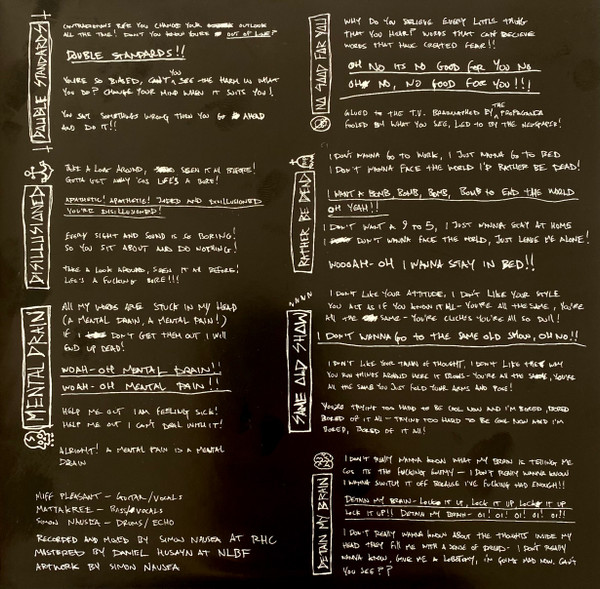 DOUBLE STANDARDS
CONTRADICTIONS R'FE YOU CHANGE YOUR OUTLOOK
ALL THE TIME! DON'T YOU KNOW YOU'RE OUT OF LINE?
DOUBLE STANDARDS!!
YOU'RE SO BIASED, CAN'T YOU SEE THE HARM IN WHAT
YOU DO? CHANGE YOUR MIND WHEN IT SUITS YOU!
YOU SAY SOMETHINGS WRONG THEN YOU GO AHEAD
AND DO IT!!
DISILLUSIONED
TAKE A LOOK AROUND, SEEN IT ALL BEFORE!
GOTTA GET AWAY 'COS LIFE'S A BORE!
APATHETIC! APATHETIC! JADED AND DISILLUSIONED
YOU'RE DISILLUSIONED!
EVERY SIGHT AND SOUND IS SO BORING!
SO YOU SIT ABOUT AND DO NOTHING!
TAKE A LOOK AROUND, SEEN IT ALL BEFORE!
LIFE'S A FUCKING BORE!!!
MENTAL DRAIN
ALL MY WORDS ARE STUCK IN MY HEAD
(A MENTAL DRAIN, A MENTAL PAIN!)
IF I DON'T GET THEM OUT I WILL
END UP DEAD!
WOAH-OH MENTAL DRAIN!!
WOAH-OH MENTAL PAIN!!
HELP ME OUT I AM FEELING SICK!
HELP ME OUT I CAN'T DEAL WITH IT!
ALRIGHT! A MENTAL PAIN IS A MENTAL
DRAIN
MIFF PLEASANT - GUITAR/VOCALS
MATTAKREE - BASS/VOCALS
SIMON NAUSEA - DRUMS/ECHO
RECORDED AND MIXED BY SIMON NAUSEA AT RHC
MASTERED BY DANIEL HUSAYN AT NLBF
ARTWORK BY SIMON NAUSEA
NO GOOD FOR YOU
WHY DO YOU BELIEVE EVERY LITTLE THING
THAT YOU HEAR? WORDS THAT CAN'T BELIEVE
WORDS THAT HAVE CREATED FEAR!!
OH NO ITS NO GOOD FOR YOU NO
OH NO, NO GOOD FOR YOU!!!
GLUED TO THE T.V. BRAINWASHED BY THE PROPAGANDA
FOOLED BY WHAT YOU SEE, LED TO BY THE NEWSPAPER!
RATHER BE DEAD
I DON'T WANNA GO TO WORK, I JUST WANNA GO TO BED
I DON'T WANNA FACE THE WORLD I'D RATHER BE DEAD!
I WANT A BOMB, BOMB, BOMB, BOMB TO END THE WORLD
OH YEAH!!
I DON'T WANT A 9 TO 5, I JUST WANNA STAY AT HOME
I DON'T WANNA FACE THE WORLD, JUST LEAVE ME ALONE!
WOOOAH-OH I WANNA STAY IN BED!!
SAME OLD SHOW
I DON'T LIKE YOUR ATTITUDE, I DON'T LIKE YOUR STYLE
YOU ACT AS IF YOU KNOW IT ALL - YOU'RE ALL THE SAME, YOU'RE
ALL THE SAME - YOU'RE CLICHES YOU'RE ALL SO DULL!
I DON'T WANNA GO TO THE SAME OLD SHOW, OH NO!!
I DON'T LIKE YOUR TRAIN OF THOUGHT, I DON'T LIKE THE WAY
YOU RUN THINGS AROUND HERE IT DRAGS - YOU'RE ALL THE SAME, YOU'RE
ALL THE SAME YOU JUST FOLD YOUR ARMS AND POSE!
YOU'RE TRYING TOO HARD TO BE COOL NOW AND I'M BORED, BORED
BORED OF IT ALL - TRYING TOO HARD TO BE COOL NOW AND I'M
BORED, BORED OF IT ALL!
DETAIN MY BRAIN
I DON'T REALLY WANNA KNOW WHAT MY BRAIN IS TELLING ME
COS ITS THE FUCKING ENEMY - I DON'T REALLY WANNA KNOW
I WANNA SWITCH IT OFF BECAUSE I'VE FUCKING HAD ENOUGH!!
DETAIN MY BRAIN - LOCK IT UP, LOCK IT UP LOCK IT UP
LOCK IT UP!! DETAIN MY BRAIN - OI! OI! OI! OI! OI!!
I DON'T REALLY WANNA KNOW ABOUT THE THOUGHTS INSIDE MY
HEAD THEY FILL ME WITH A SENSE OF DREAD - I DON'T REALLY
WANNA KNOW, GIVE ME A LOBOTOMY, I'M GOING MAD NOW. CAN'T
YOU SEE??